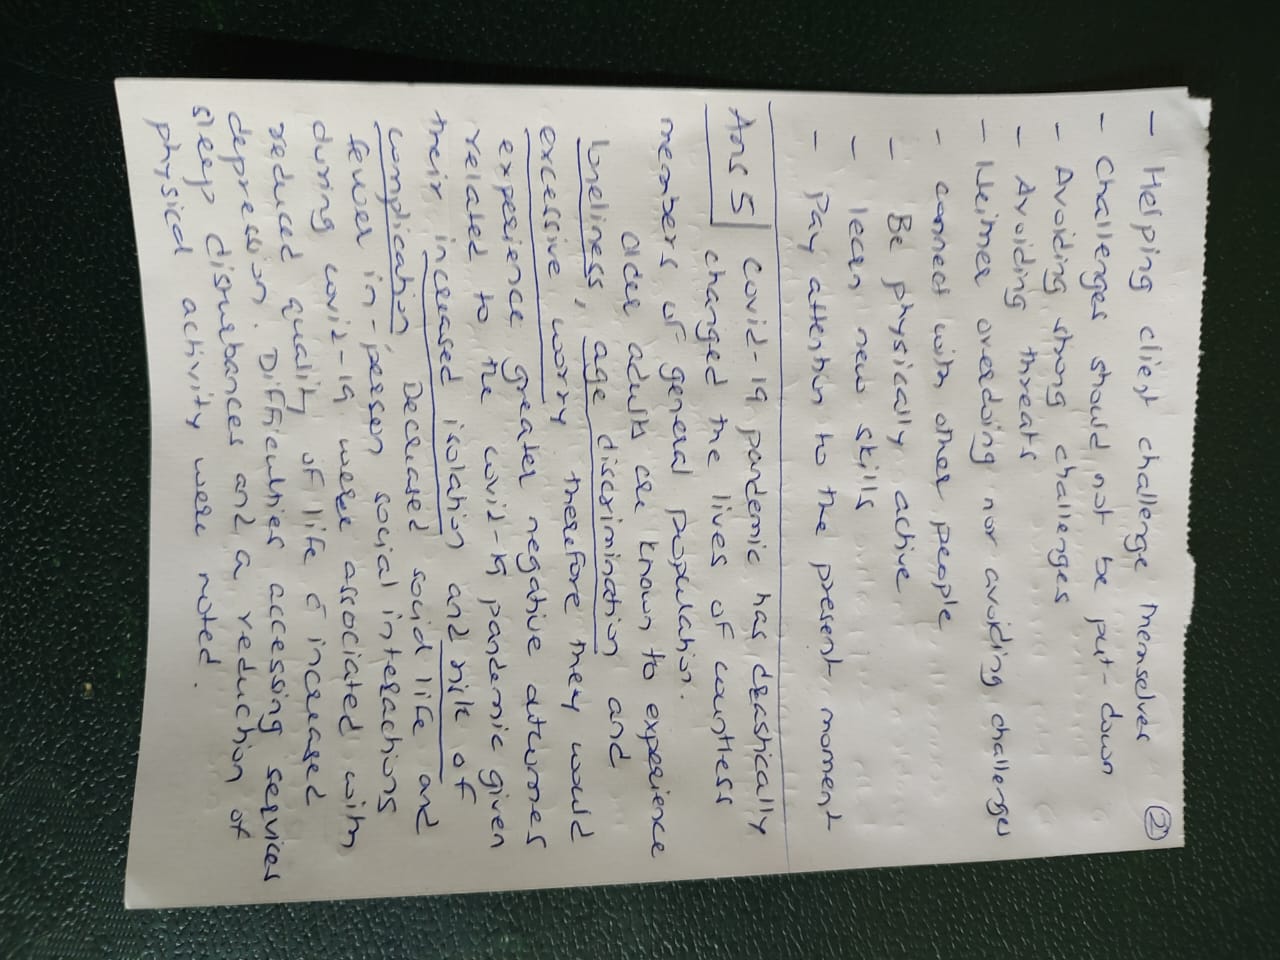 ②
- Helping client challenge themselves
- Challenges should not be put-down
- Avoiding strong challenges
- Avoiding threats
- Neither overdoing nor avoiding challenges
- connect with other people
- Be physically active
- learn new skills
- Pay attention to the present moment
Ans 5 covid-19 pandemic has drastically
changed the lives of countless
members of general population.
Older adults are known to experience
loneliness, age discrimination and
excessive worry therefore they would
experience greater negative outcomes
related to the covid-19 pandemic given
their increased isolation and risk of
complication. Decreased social life and
fewer in-person social interactions
during covid-19 were associated with
reduced quality of life c̄ increased
depression. Difficulties accessing services
sleep disturbances and a reduction of
physical activity were noted.